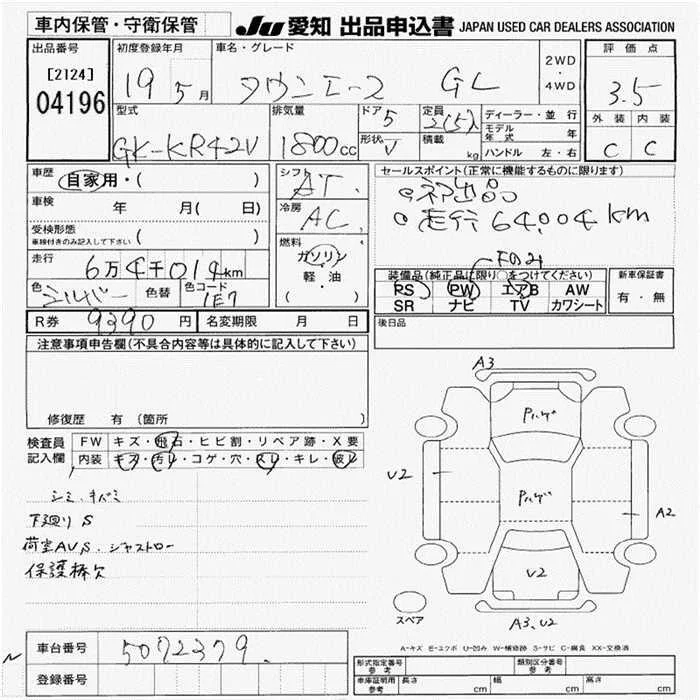 車内保管・守衛保管
JU 愛知 出品申込書 JAPAN USED CAR DEALERS ASSOCIATION
出品番号
[2124]
04196
初度登録年月
19 5月
車名・グレード
タウンエース GL
2WD
・
4WD
評価点
3.5
型式
GK-KR42V
排気量
1800cc
ドア 5
形状 V
定員 2(5)人
積載 kg
ディーラー・並行
モデル年式 年
ハンドル 左・右
外装 内装
C C
車歴
自家用・( )
車検 年 月( 日)
受検形態
車検付きのみ記入して下さい ( )
走行
6万4千014km
色 シルバー 色替 色コード 1E7
R券 9390円 名変期限 月 日
シフト AT
冷房 AC
燃料
ガソリン
・
軽油
( )
セールスポイント(正常に機能するものに限ります)
走行64,004km
下のみ
装備品(純正品に限り○をつけてください)
PS PW エアB AW
SR ナビ TV カワシート
新車保証書
有・無
後日品
注意事項申告欄(不具合内容等は具体的に記入して下さい)
修復歴 有 (箇所 )
検査員記入欄
FW キズ・飛石・ヒビ割・リペア跡・X要
内装 キズ・汚レ・コゲ・穴・スレ・キレ・破レ
シミ、キバミ
下廻り S
荷室AV,S、ジャストロー
保護棒欠
A3
Pハゲ
U2
Pハゲ
A2
U2
スペア
A3,U2
A-キズ E-エクボ U-凹み W-補修跡 S-サビ C-腐食 XX-交換済
車台番号 5072379
登録番号
形式指定番号 参考
類別区分番号 参考
車庫証明用 参考 長さ cm 幅 cm 高さ cm